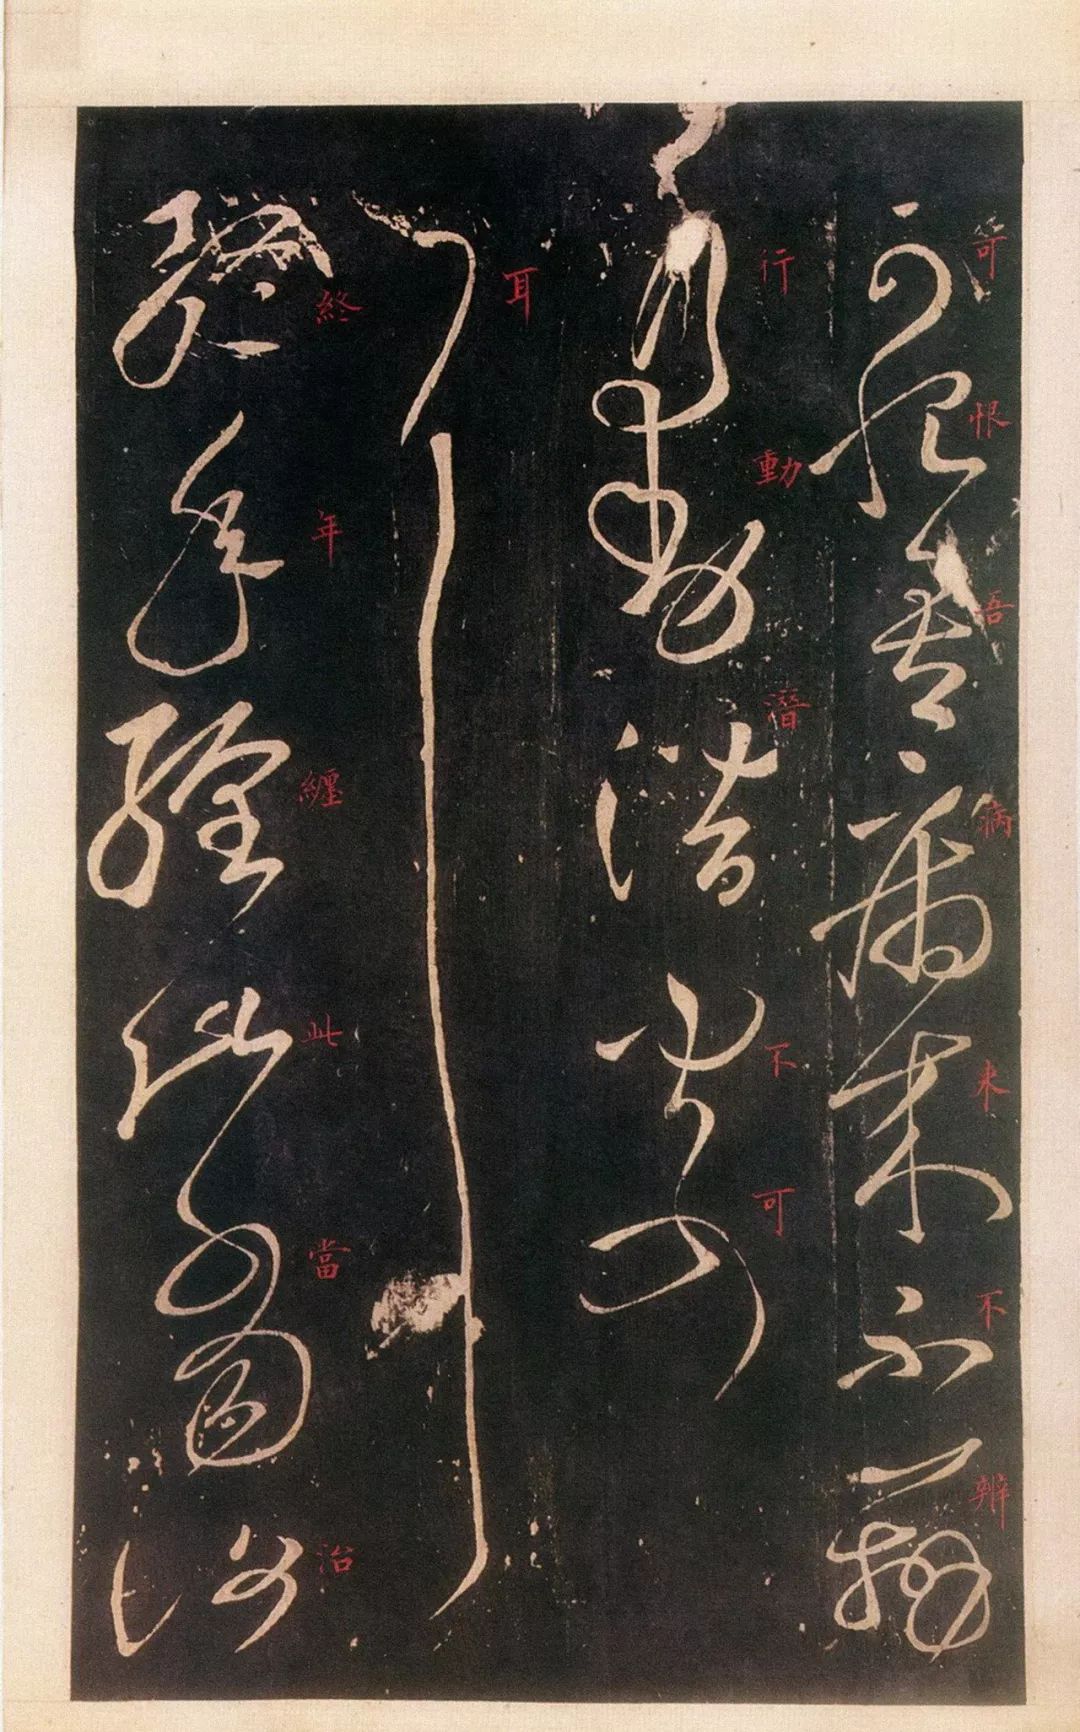 可恨吾病来不辨
行動潛不可
耳
終年纏此當治